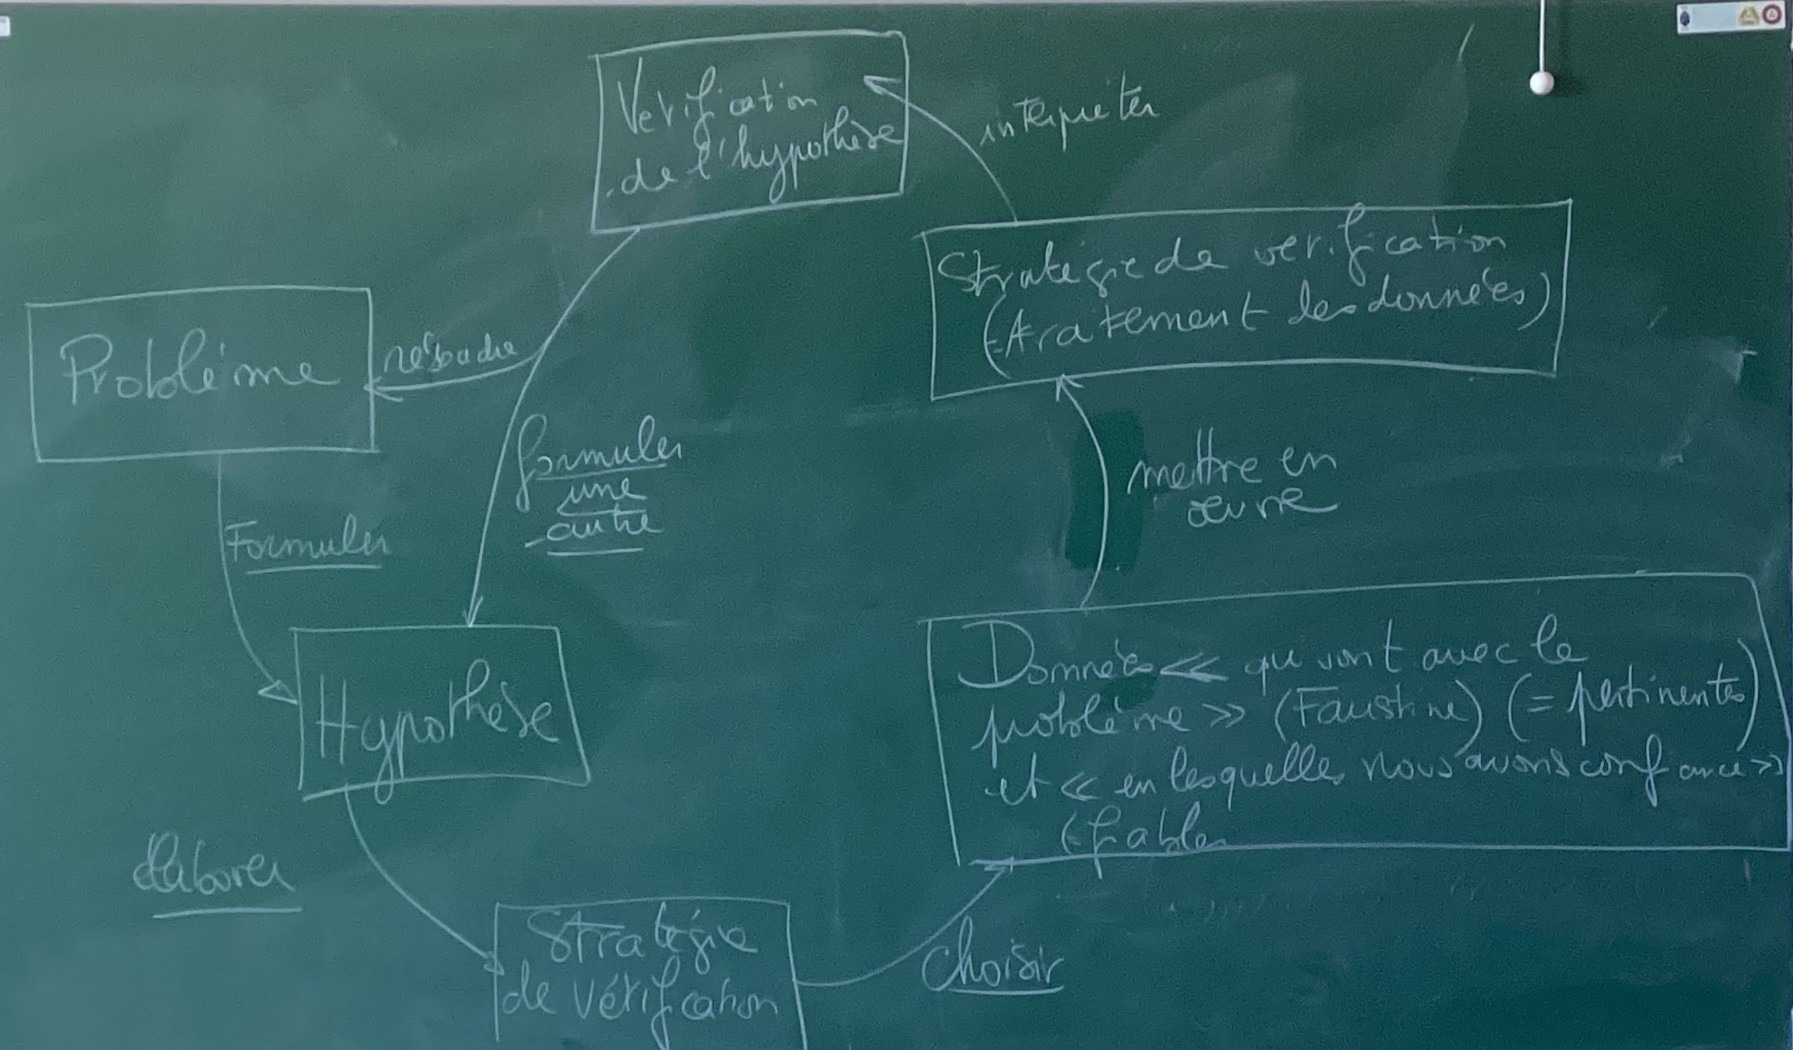 Vérification
de l'hypothèse
interpréter
Stratégie de vérification
(traitement des données)
Problème
résoudre
formuler
une
autre
mettre en
œuvre
Formuler
Hypothèse
Données << qui vont avec le
problème >> (Faustine) (= pertinentes)
et << en lesquelles nous avons confiance >>
(fiables
élaborer
Stratégie
de vérification
choisir